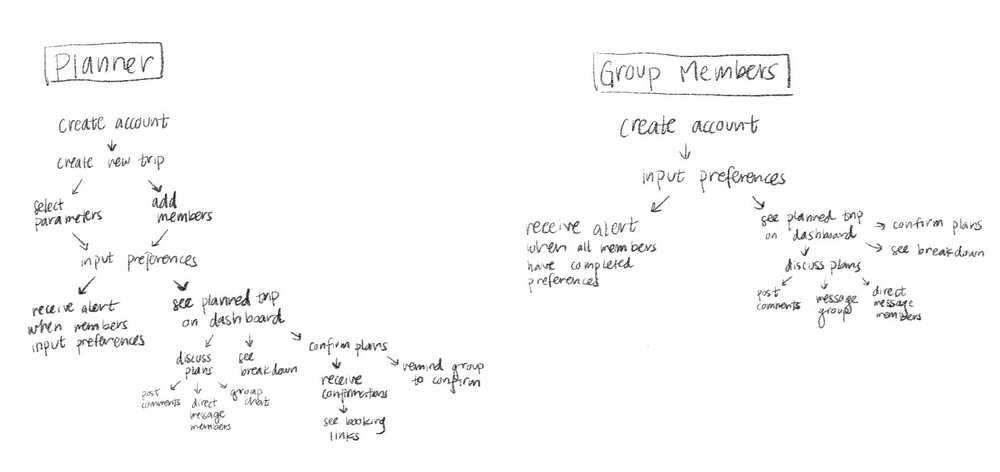 Planner
create account
create new trip
select
parameters
add
members
input preferences
receive alert
when members
input preferences
see planned trip
on dashboard
discuss
plans
see
breakdown
confirm plans
remind group
to confirm
post
comments
direct
message
members
group
chat
receive
confirmations
see booking
links
Group Members
create account
input preferences
receive alert
when all members
have completed
preferences
see planned trip
on dashboard
confirm plans
see breakdown
discuss plans
post
comments
message
group
direct
message
members